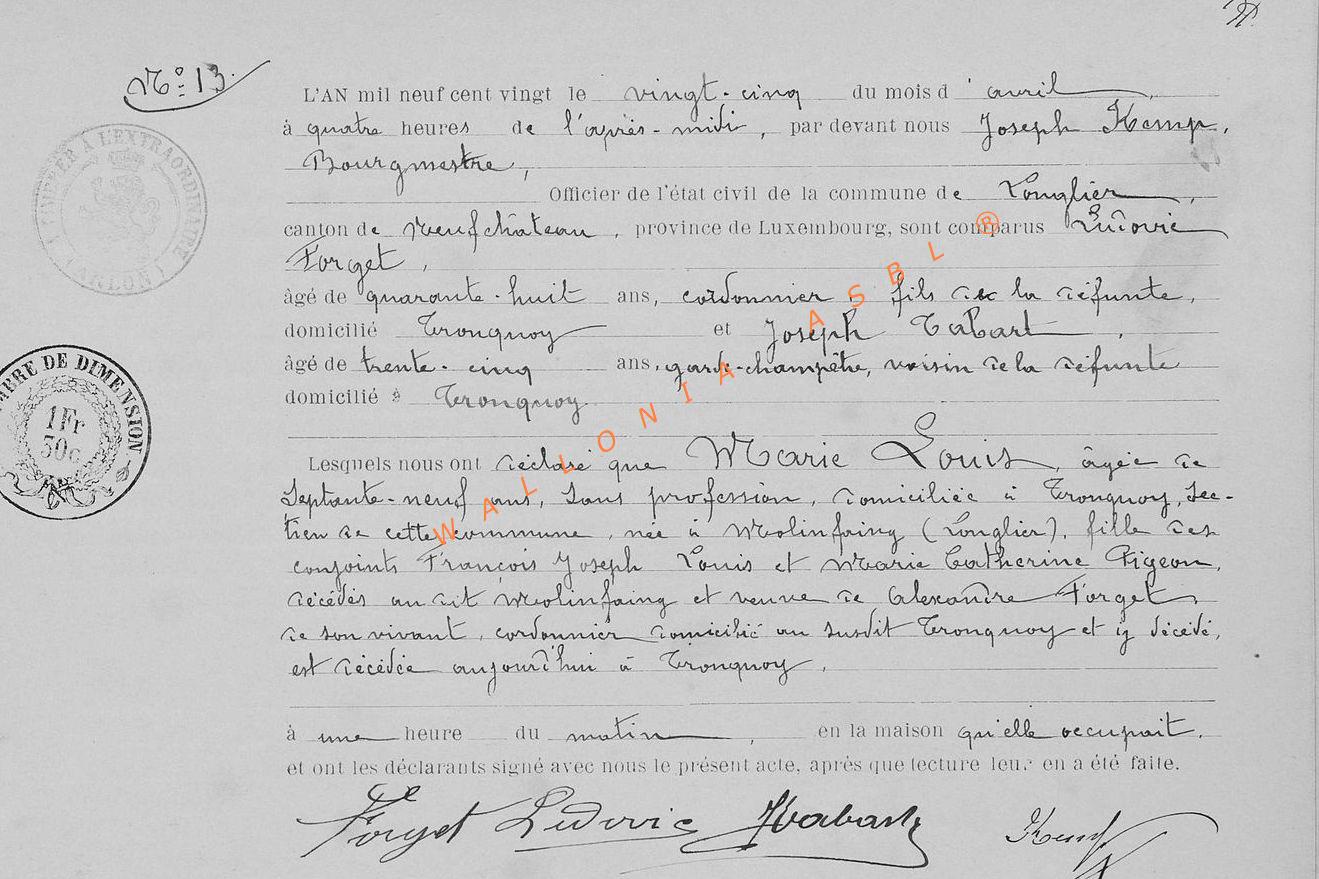 Nº 13.
L'AN mil neuf cent vingt le vingt-cinq du mois d'avril,
à quatre heures de l'après-midi, par devant nous Joseph Kemp,
Bourgmestre,
Officier de l'état civil de la commune de Longlier,
canton de Neufchâteau, province de Luxembourg, sont comparus Ludovic
Forget,
âgé de quarante-huit ans, cordonnier, fils de la défunte,
domicilié Tronquoy et Joseph Tabart,
âgé de trente-cinq ans, garde-champêtre, voisin de la défunte
domicilié à Tronquoy
Lesquels nous ont déclaré que Marie Louis, âgée de
septante-neuf ans, sans profession, domiciliée à Tronquoy, sec-
tion de cette commune, née à Molinfaing (Longlier), fille des
conjoints François Joseph Louis et Marie Catherine Pigeon,
décédés au dit Molinfaing et veuve de Alexandre Forget,
de son vivant, cordonnier domicilié au susdit Tronquoy et y décédé,
est décédée aujourd'hui à Tronquoy,
à une heure du matin, en la maison qu'elle occupait,
et ont les déclarants signé avec nous le présent acte, après que lecture leur en a été faite.
Forget Ludovic JTabart Kemp
A L'EXTRAORDINAIRE
(ARLON)
TIMBRE DE DIMENSION
1Fr
50c
WALLONIA ASBL ®